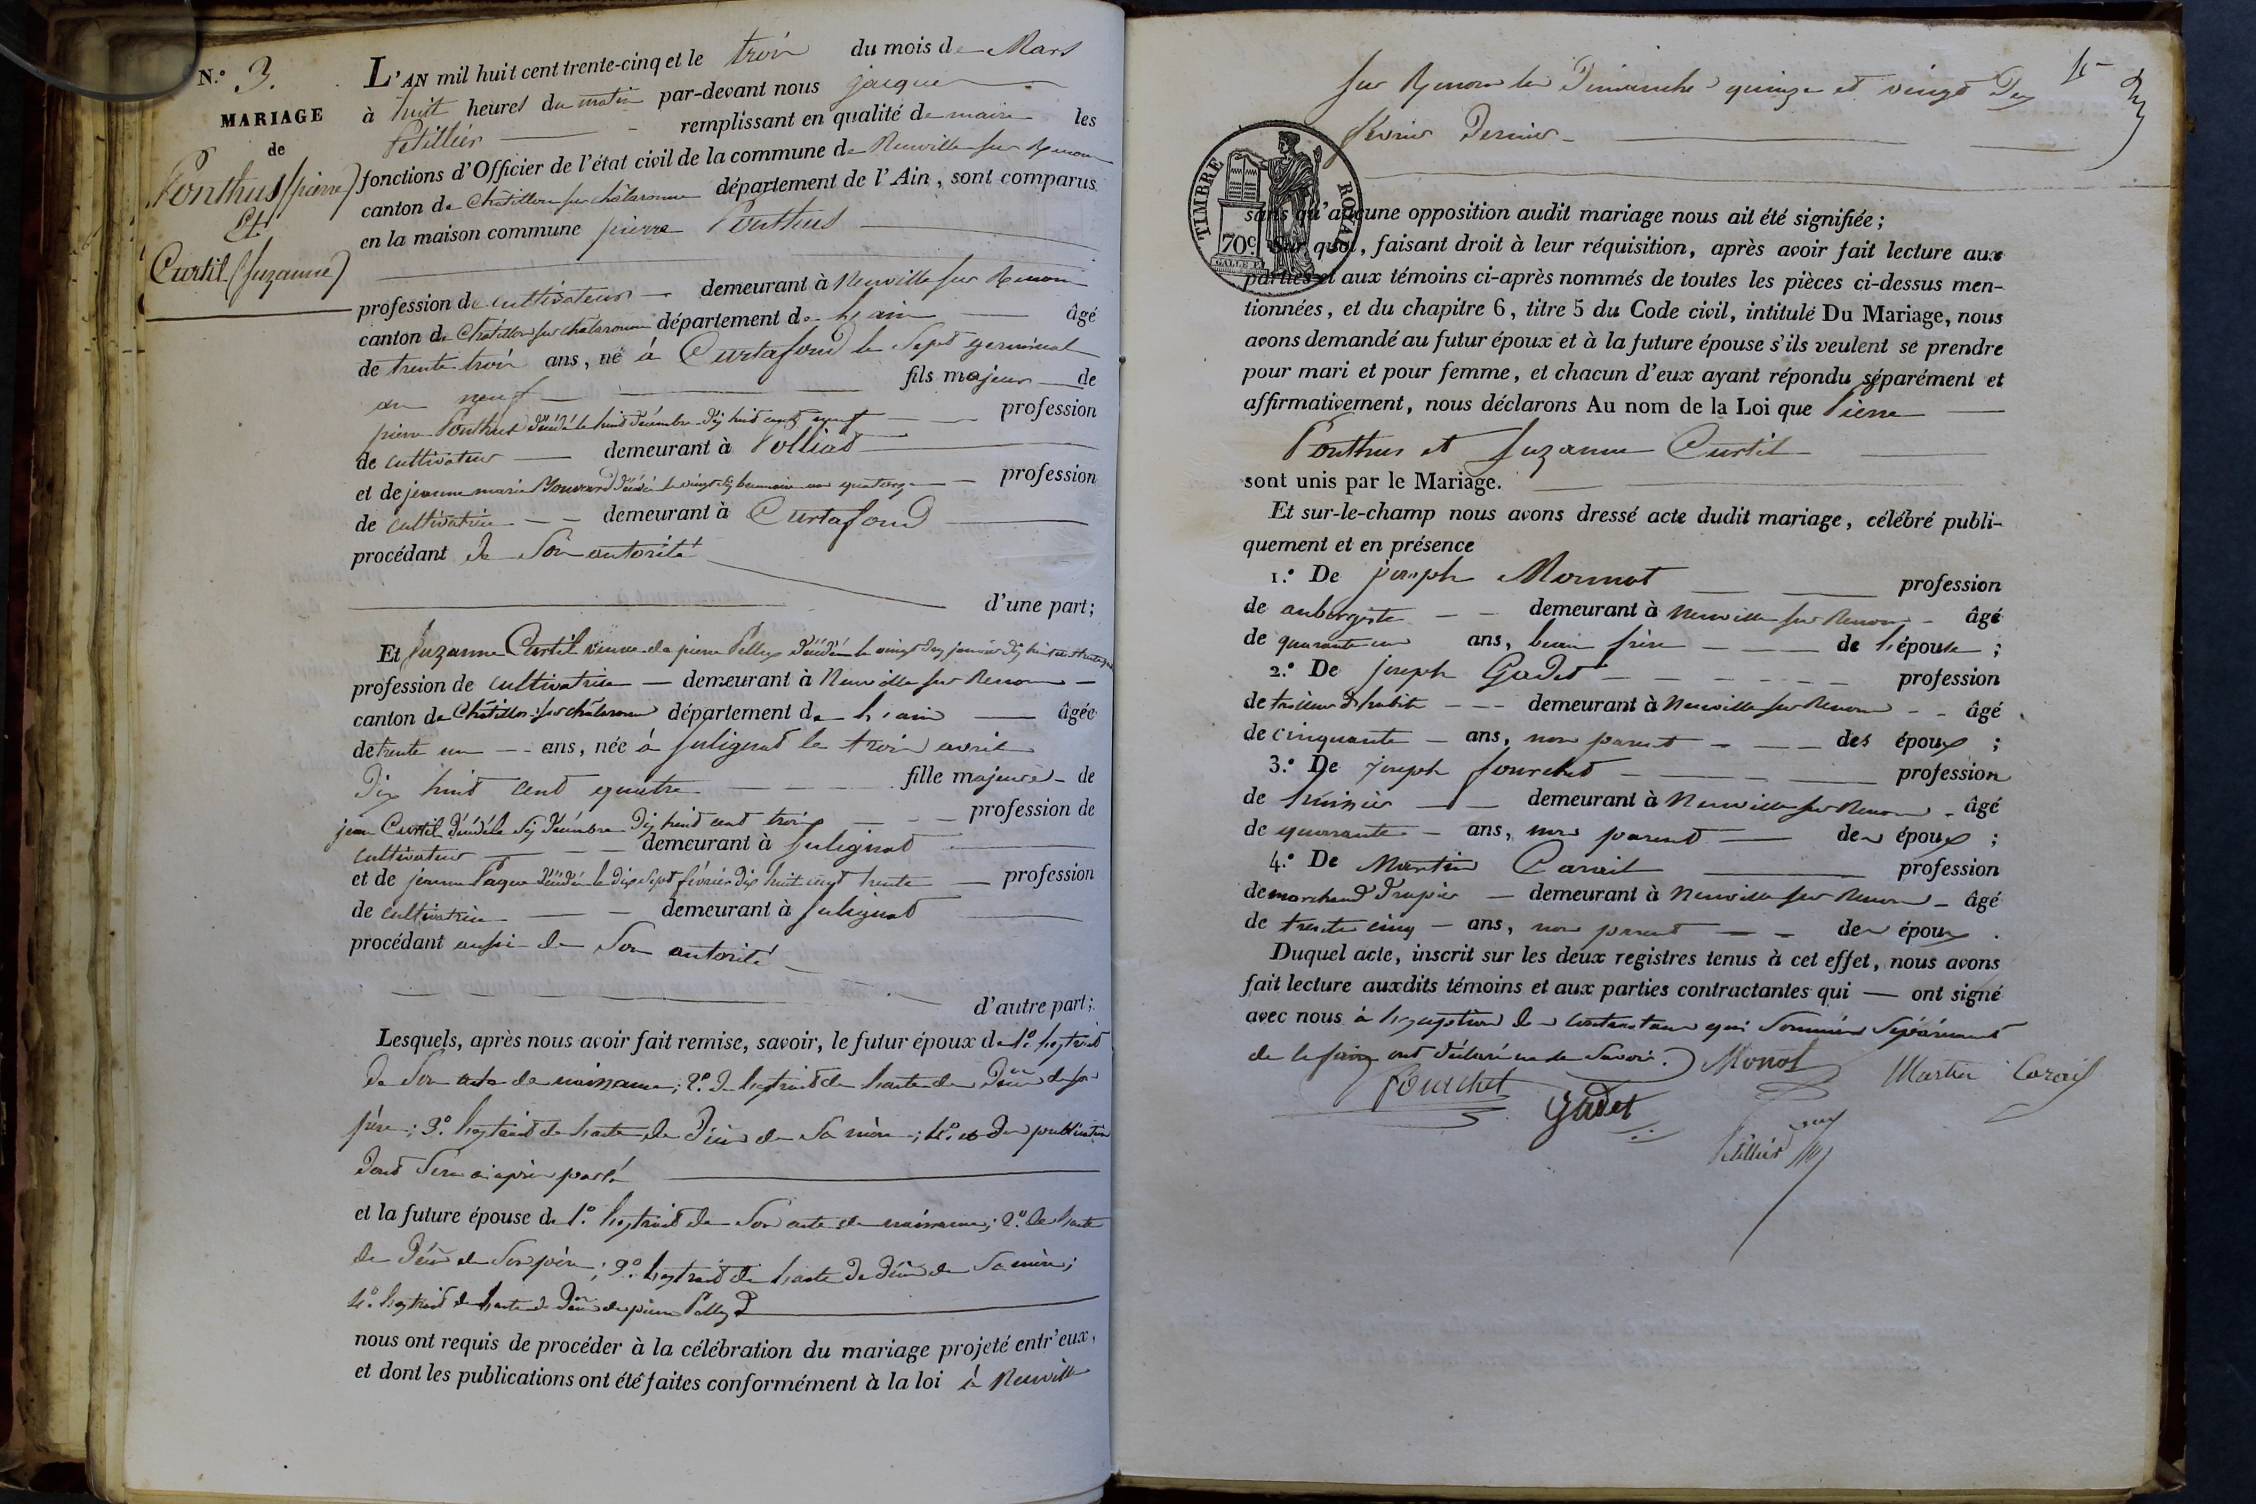 N.º 3.
MARIAGE
de
Ponthus (pierre)
Et
Curtil (Suzanne)
L'AN mil huit cent trente-cinq et le trois du mois de Mars
à huit heures du matin par-devant nous jacques
Petillier remplissant en qualité de maire les
fonctions d'Officier de l'état civil de la commune de Neuville sur Renom
canton de Châtillon sur châlaronne département de l'Ain, sont comparus
en la maison commune pierre Ponthus
profession de cultivateur demeurant à Neuville sur Renom
canton de Châtillon sur châlaronne département de l'ain âgé
de trente trois ans, né à Curtafond le sept germinal
an neuf fils majeur de
pierre Ponthus décédé le huit décembre dix huit cent neuf profession
de cultivateur demeurant à Polliat
et de jeanne marie décédée le vingt six brumaire an quatorze profession
de cultivatrice demeurant à Curtafond
procédant de son autorité
d'une part;
Et Suzanne Curtil veuve de pierre Pelly décédé le vingt dix huit cent
profession de cultivatrice demeurant à Neuville sur Renom
canton de Châtillon sur châlaronne département de l'ain âgée
de trente un ans, née à Sulignat le trois avril
dix huit cent quatre fille majeure de
jean Curtil décédé le six décembre dix huit cent trois profession de
cultivateur demeurant à Sulignat
et de jeanne Paque décédée le dix sept février dix huit cent trente profession
de cultivatrice demeurant à Sulignat
procédant aussi de son autorité
d'autre part;
Lesquels, après nous avoir fait remise, savoir, le futur époux de 1º. l'extrait
de son acte de naissance; 2º. de l'extrait de l'acte de décès de son
père; 3º. l'extrait de l'acte de décès de sa mère; 4º. et des publications
dont sera ci après parlé
et la future épouse de 1º. l'extrait de son acte de naissance; 2º. de l'acte
de décès de son père; 3º. l'extrait de l'acte de décès de sa mère;
4º. l'extrait de l'acte de décès de pierre Pelly
nous ont requis de procéder à la célébration du mariage projeté entr'eux,
et dont les publications ont été faites conformément à la loi à Neuville
sur Renom les Dimanche quinze et vingt Deux
février Dernier
TIMBRE ROYAL
70c
sans qu'aucune opposition audit mariage nous ait été signifiée;
Sur quoi, faisant droit à leur réquisition, après avoir fait lecture aux
parties et aux témoins ci-après nommés de toutes les pièces ci-dessus men-
tionnées, et du chapitre 6, titre 5 du Code civil, intitulé Du Mariage, nous
avons demandé au futur époux et à la future épouse s'ils veulent se prendre
pour mari et pour femme, et chacun d'eux ayant répondu séparément et
affirmativement, nous déclarons Au nom de la Loi que Pierre
Ponthus et Suzanne Curtil
sont unis par le Mariage.
Et sur-le-champ nous avons dressé acte dudit mariage, célébré publi-
quement et en présence
1.º De joseph Monnot profession
de aubergiste demeurant à Neuville sur Renom âgé
de quarante un ans, beau frère de l'épouse;
2.º De joseph Gadet profession
de tailleur d'habits demeurant à Neuville sur Renom âgé
de cinquante ans, non parent des époux;
3.º De joseph fourchet profession
de demeurant à Neuville sur Renom âgé
de quarante ans, non parent des époux;
4.º De Martin Carail profession
de marchand Drapier demeurant à Neuville sur Renom âgé
de trente cinq ans, non parent des époux.
Duquel acte, inscrit sur les deux registres tenus à cet effet, nous avons
fait lecture auxdits témoins et aux parties contractantes qui ont signé
avec nous à l'exception des contractans qui sommés séparément
de le faire ont déclaré ne le savoir.
Monot
Martin Carail
fourchet
gadet
Petillier